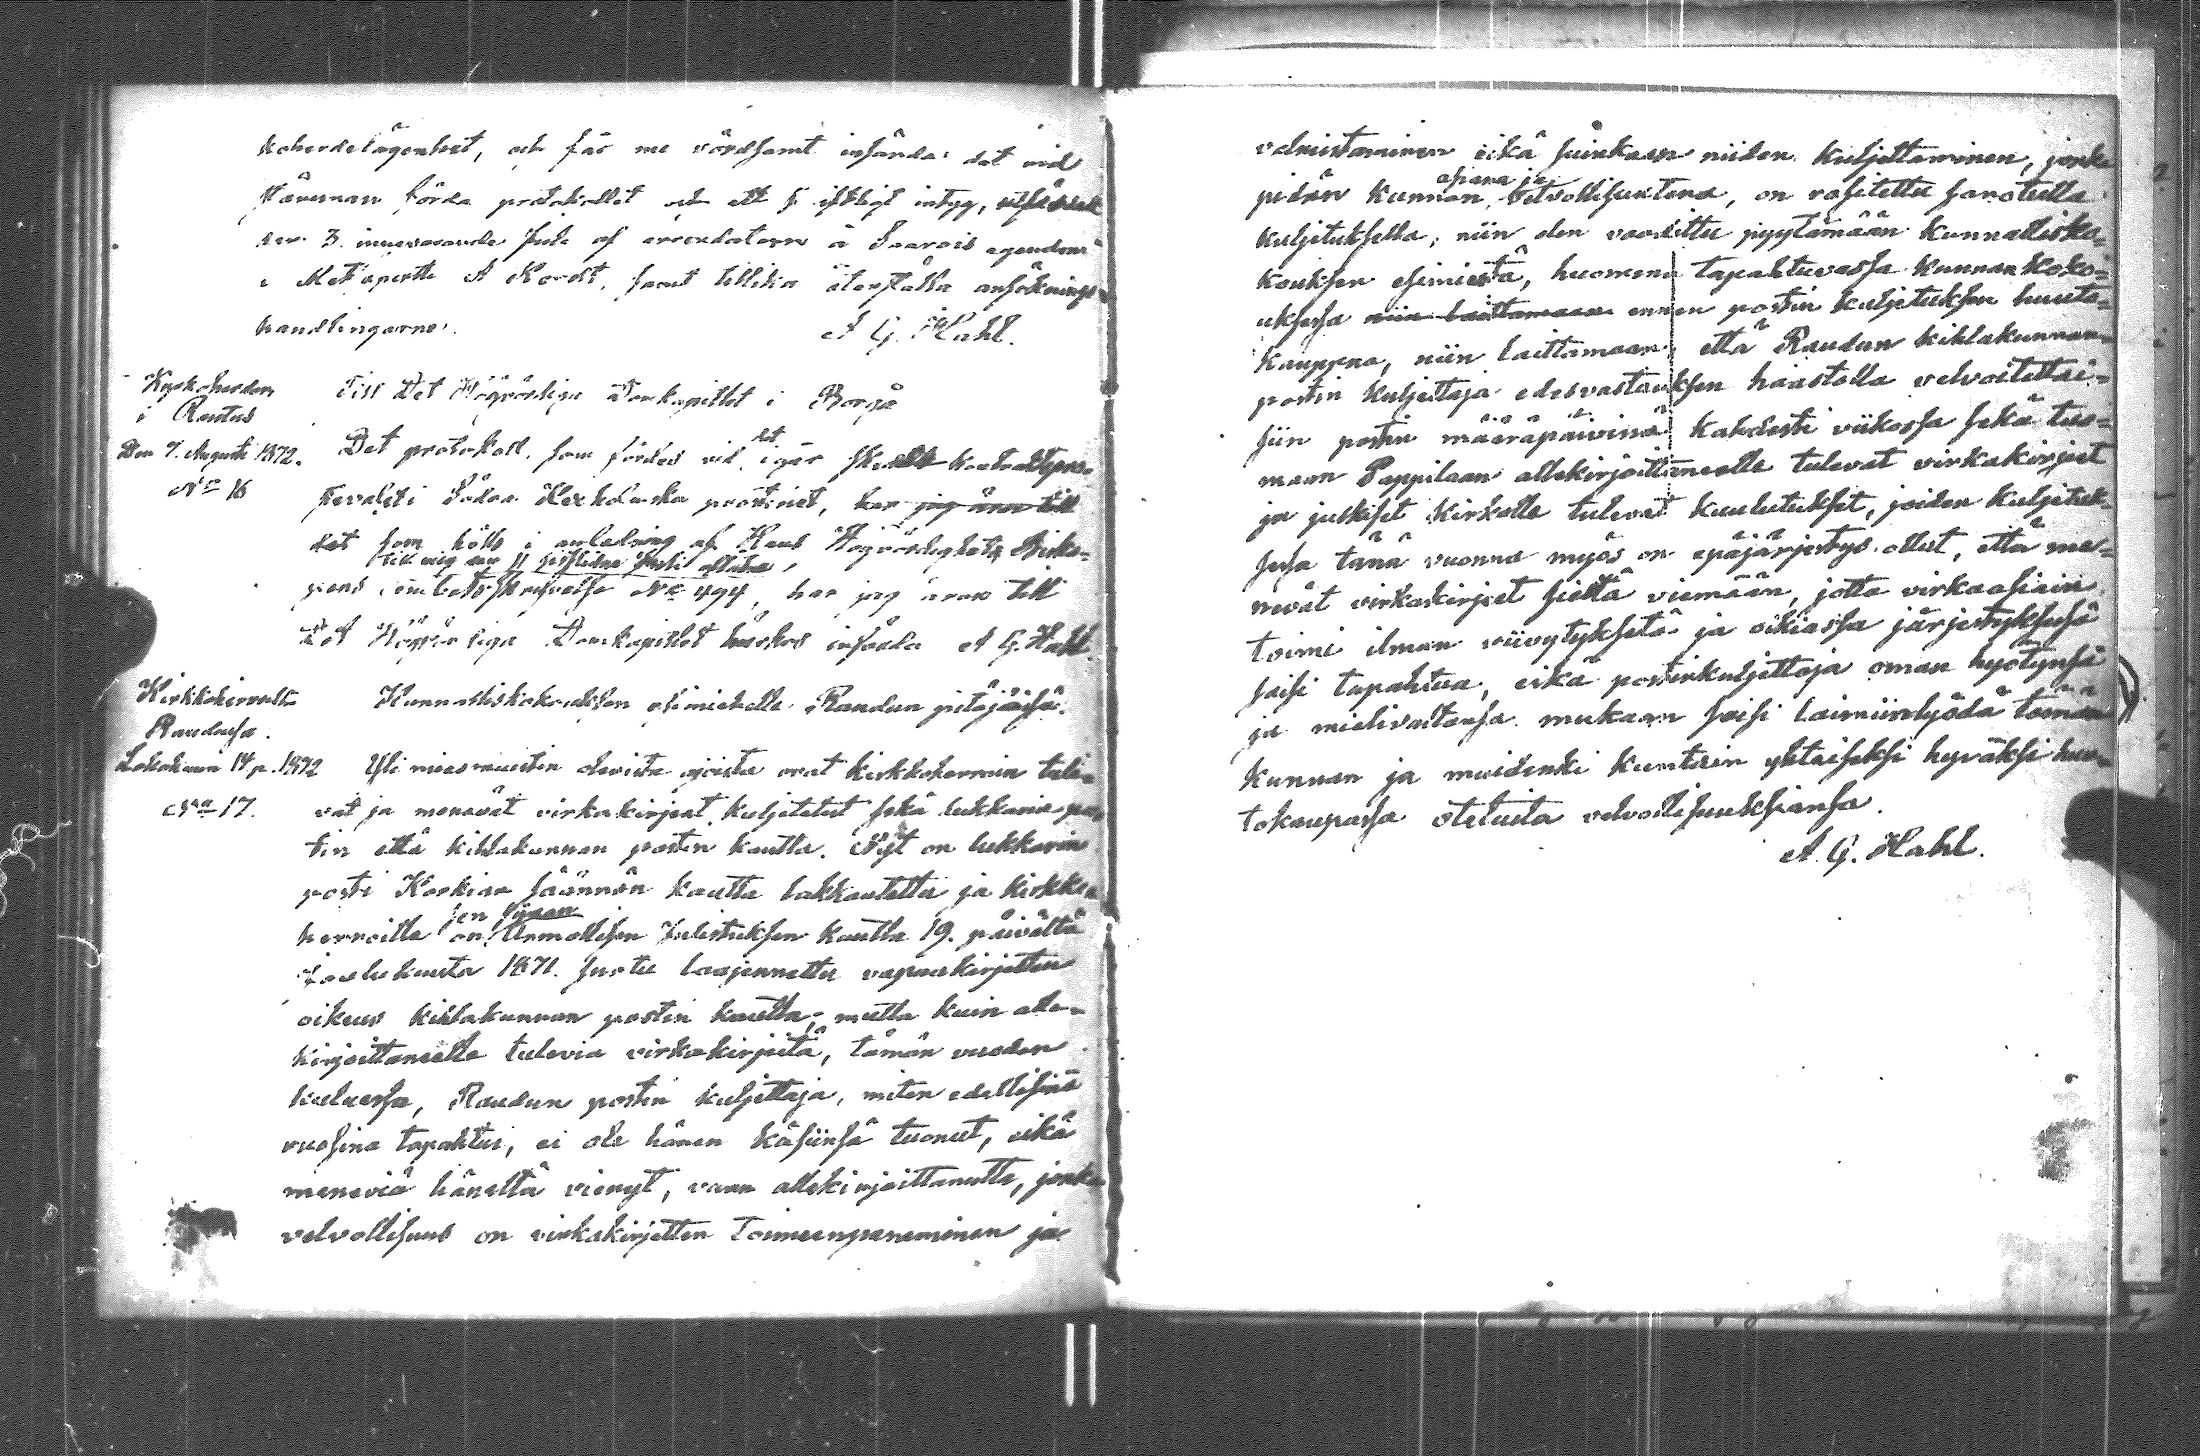 koherdelägenhet, och får me vördsamt insända: det vid
stämman förda protokollet och ett skriftligt intyg, utfärdadt
den 3. innevarande Juli af arrendatorn å Saarois egendom
i Metsäpirtti A Kordt, samt tillika återställa ansöknings-
handlingarne.
A G. Hahl.
Kyrkoherden
i Rautus
Den 7. Augusti 1872.
No 16
Till Det Högvördiga Domkapitlet i Borgå
Det protokoll, som fördes vid det igår skedda kontrakts
i Södra Kexholmska prosteriet, har jag äran till
det som hölls i anledning af Hans Högvördighet Bisko-
till mig den 11 sistlidne Juli aflåtna
pens embetsskrifvelse No 494, har jag äran till
Det Högvördiga Domkapitlet härhos insända A G. Hahl.
Kirkkoherralta
Raudussa.
Lokakuun 14 p. 1872
No 17.
Kunnalliskokouksen esimiehelle Raudun pitäjäässä.
Yli miesmuistin olevista ajoista ovat kirkkoherran tule-
vat ja menevät virkakirjeet kuljetetut sekä lukkarin pos-
tin että kihlakunnan postin kautta. Nyt on lukkarin
posti Korkian säännön kautta lakkautettu ja kirkko-
sen sijaan
herroille on Armollisen Julistuksen kautta 19. päivältä
Joulukuuta 1871. suotu laajennettu vapaakirjetten
oikeus kihlakunnan postin kautta; mutta kuin alle-
kirjoittaneelle tulevia virkakirjeitä, tämän vuoden
kuluessa, Raudun postin kuljettaja, miten edellisinä
vuosina tapahtui, ei ole hänen käsiinsä tuonut, eikä
meneviä häneltä vienyt, vaan allekirjoittanutta, jonka
velvollisuus on virkakirjetten toimeenpaneminen ja
valmistaminen eikä suinkaan niiden kuljettaminen, jonka
asiana ja
pidän kunnan velvollisuutena, on rasitettu sanotulla
kuljetuksella, niin olen vaadittu pyytämään kunnallisko-
kouksen esimiestä, huomenna tapahtuvassa kunnan koko-
uksessa niin laittamaan ennen postin kuljetuksen huuto-
kauppaa, niin laittamaan, että Raudun kihlakunnan
postin kuljettaja edesvastauksen haastolla velvoitettai-
siin postin määräpäivinä kahdesti viikossa sekä tuo-
maan Pappilaan allekirjoittaneelle tulevat virkakirjeet
ja julkiset kirkolle tulevat kuulutukset, joiden kuljetuk-
sessa tänä vuonna myös on epäjärjestys ollut, että me-
nevät virkakirjeet sieltä viemään, jotta virkaasiain
toimi ilman viivytyksetä ja oikiassa järjestyksessä
saisi tapahtua, eikä postinkuljettaja oman hyötynsä
ja mielivaltansa mukaan saisi laimiinlyödä tämän
kunnan ja muidenki kuntain yhteiseksi hyväksi huu-
tokaupassa otetuita velvollisuuksiansa.
A. G. Hahl.